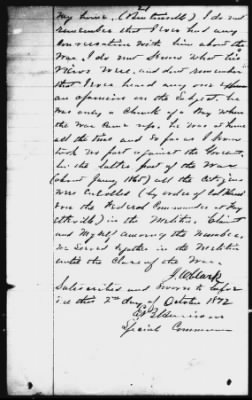 21
my house. (Bentonville) I do not
remember that I ever had any
conversation with him about the
War. I do not know what his
views were, and dont remember
that I ever heard any one express
an opinion on the subject. he
was only a Chunk of a Boy when
the War came up. he was at home
all the time and so far as I know
took no part against the Govmt.
In the latter part of the War
(about Jany 1865) all the Citizens
were enrolled (by order of
the Federal Commander at Fay
etteville) in the Militia. Claimt
and Myself among the number.
we served together in the Militia
until the Close of the War.
J. W. Clark
Subscribed and Sworn to before
me this 2nd day of October 1872
Special Commr